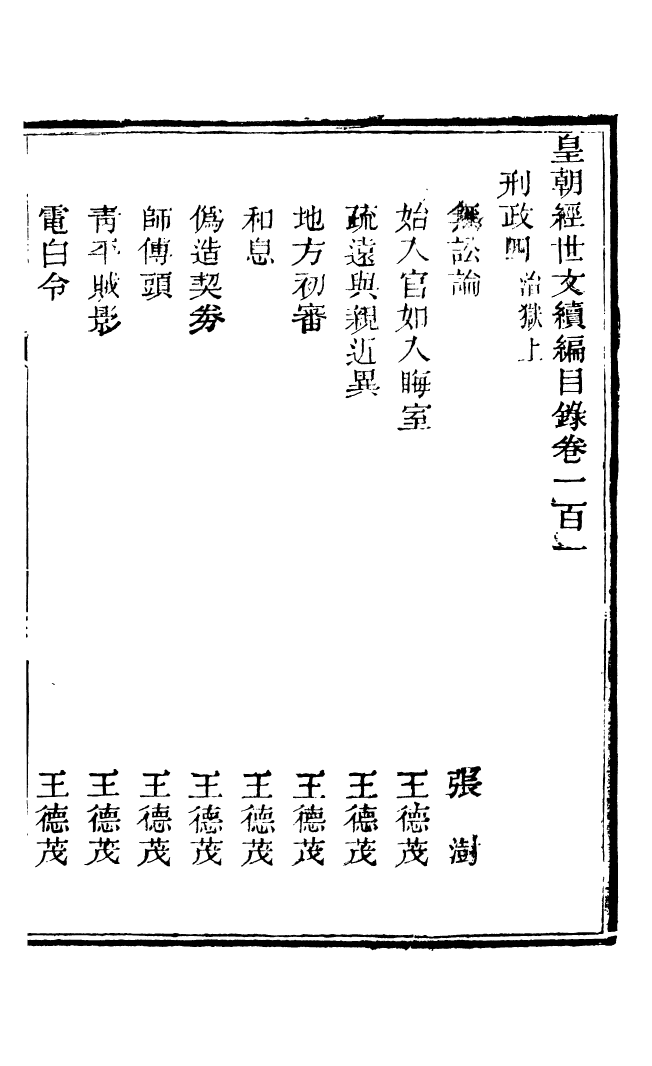 皇朝經世文續編目錄卷一百一
刑政四治獄上
無訟論 張澍
始入官如入晦室 王德茂
疏遠與親近異 王德茂
地方初審 王德茂
和息 王德茂
僞造契券 王德茂
師傅頭 王德茂
青平賊影 王德茂
電白令 王德茂